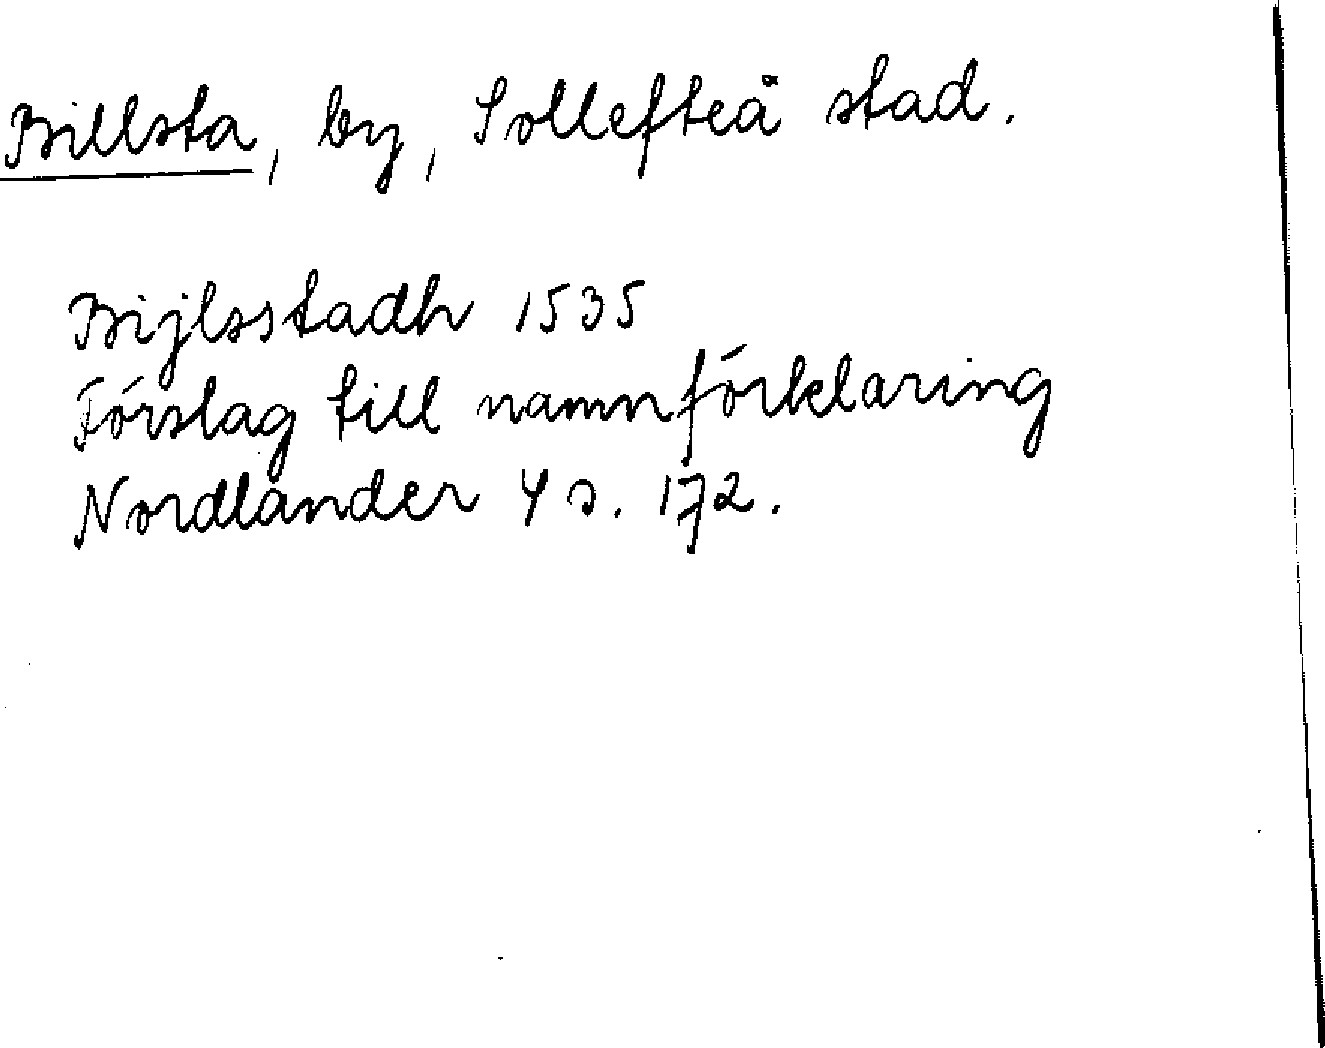 Billsta, by, Sollefteå stad.
Bijlsstadh 1535
Förslag till namnförklaring
Nordlander 4 s. 172.